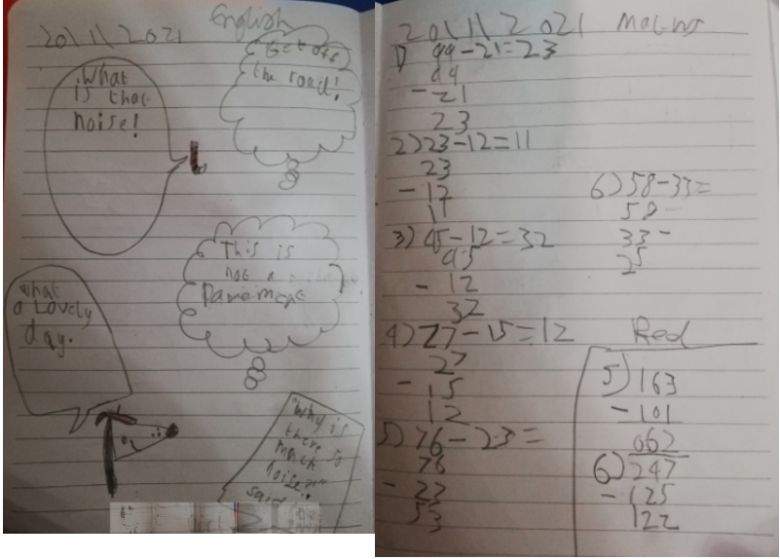 20/11/2021 English
What
is that
noise!
Get off
the road!
This is
not a
Pavement
what
a Lovely
day.
"Why is
there so
much
noise?"
said
20/11/2021 Maths
1) 44-21=23
44
-21
23
2) 23-12=11
23
-12
11
3) 45-12=32
45
-12
32
4) 27-15=12
27
-15
12
5) 76-23=
76
-23
53
6) 58-33=
58
33-
25
Red
5) 163
-101
062
6) 247
-125
122